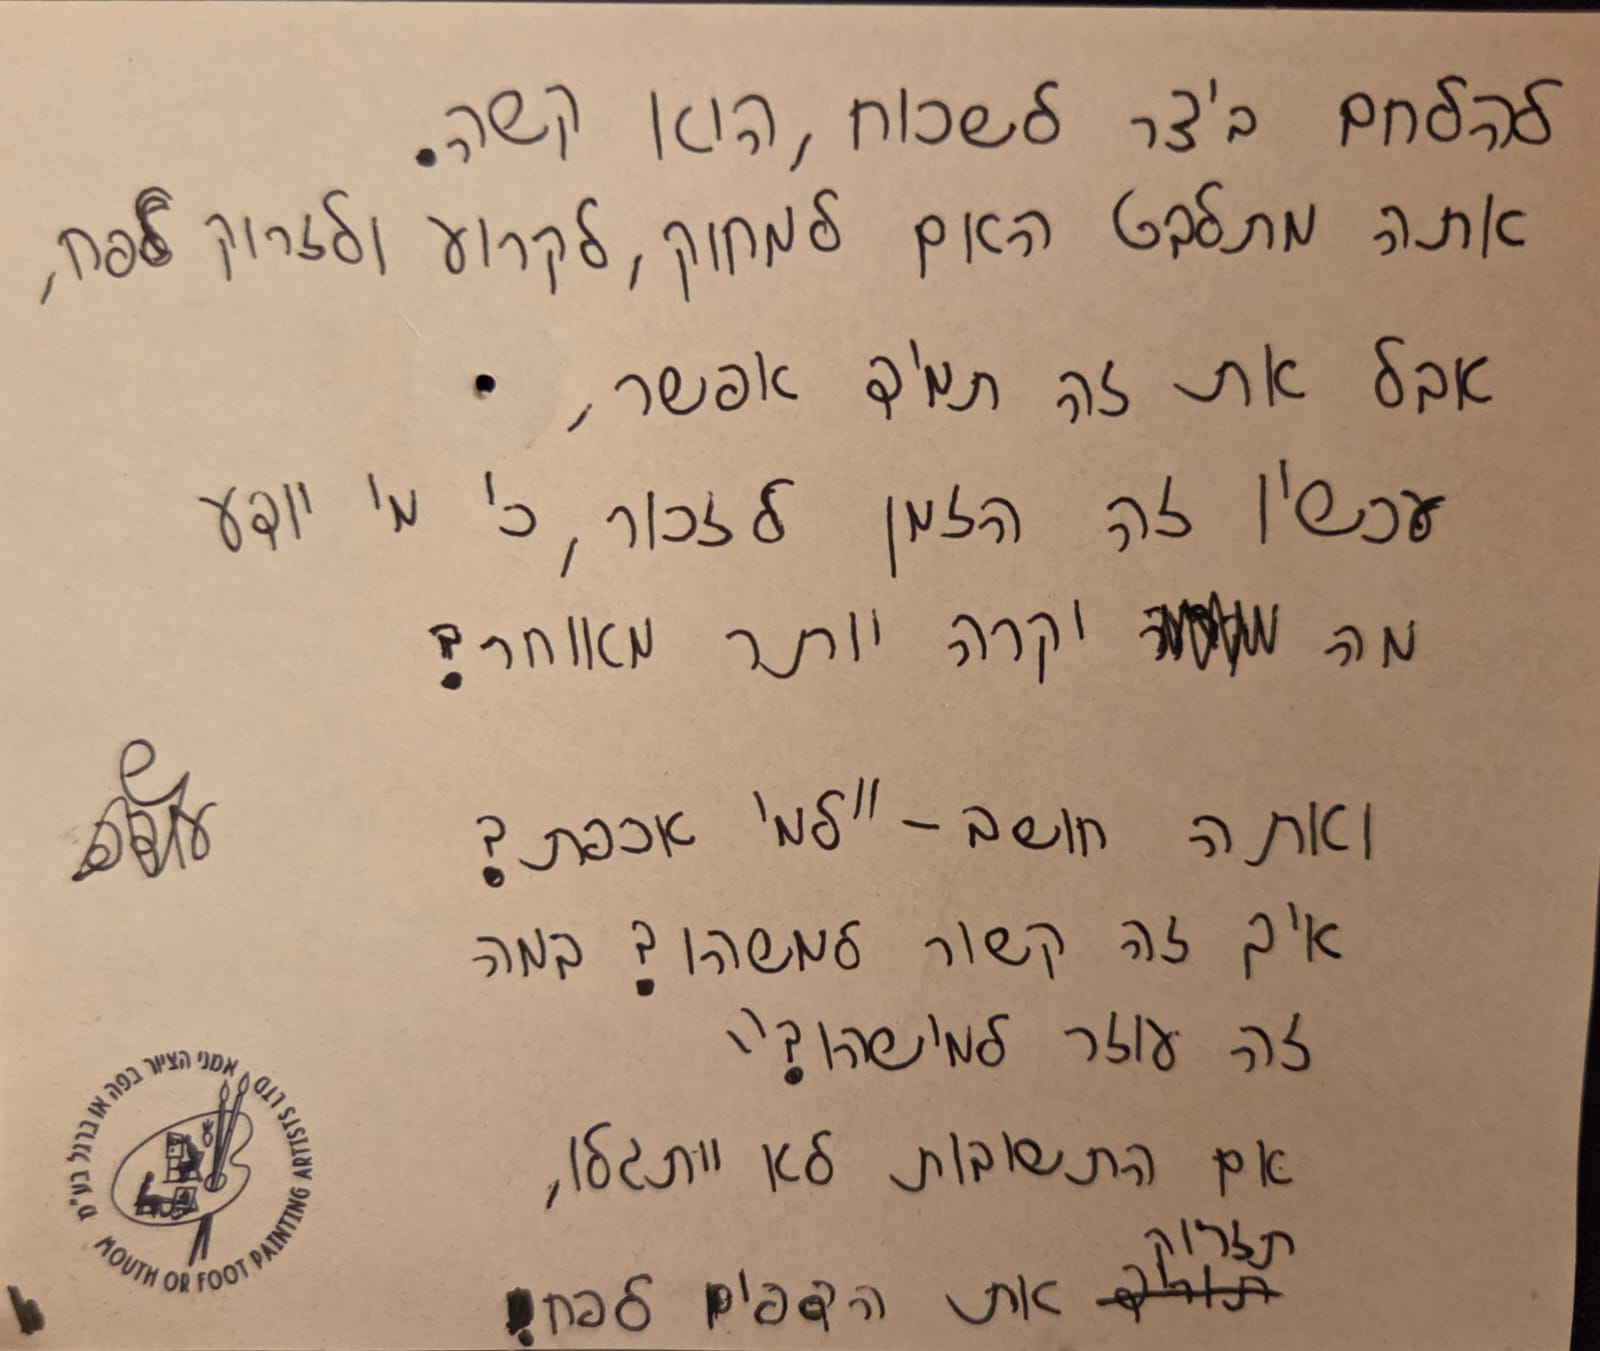 להלחם ביצר לשכוח, הוא קשה.
אתה מתלבט האם למחוק, לקרוע ולזרוק לפח,
אבל את זה תמיד אפשר,
עכשיו זה הזמן לזכור, כי מי יודע
מה יקרה יותר מאווחר?
ואתה חושב - "למי אכפת?
איך זה קשור למשהו? במה
זה עוזר למישהו?"
אם התשובות לא ייתגלו,
תזרוק
תוריד את הדפים לפח!
אמני הציור בפה או ברגל בע"מ
MOUTH OR FOOT PAINTING ARTISTS LTD